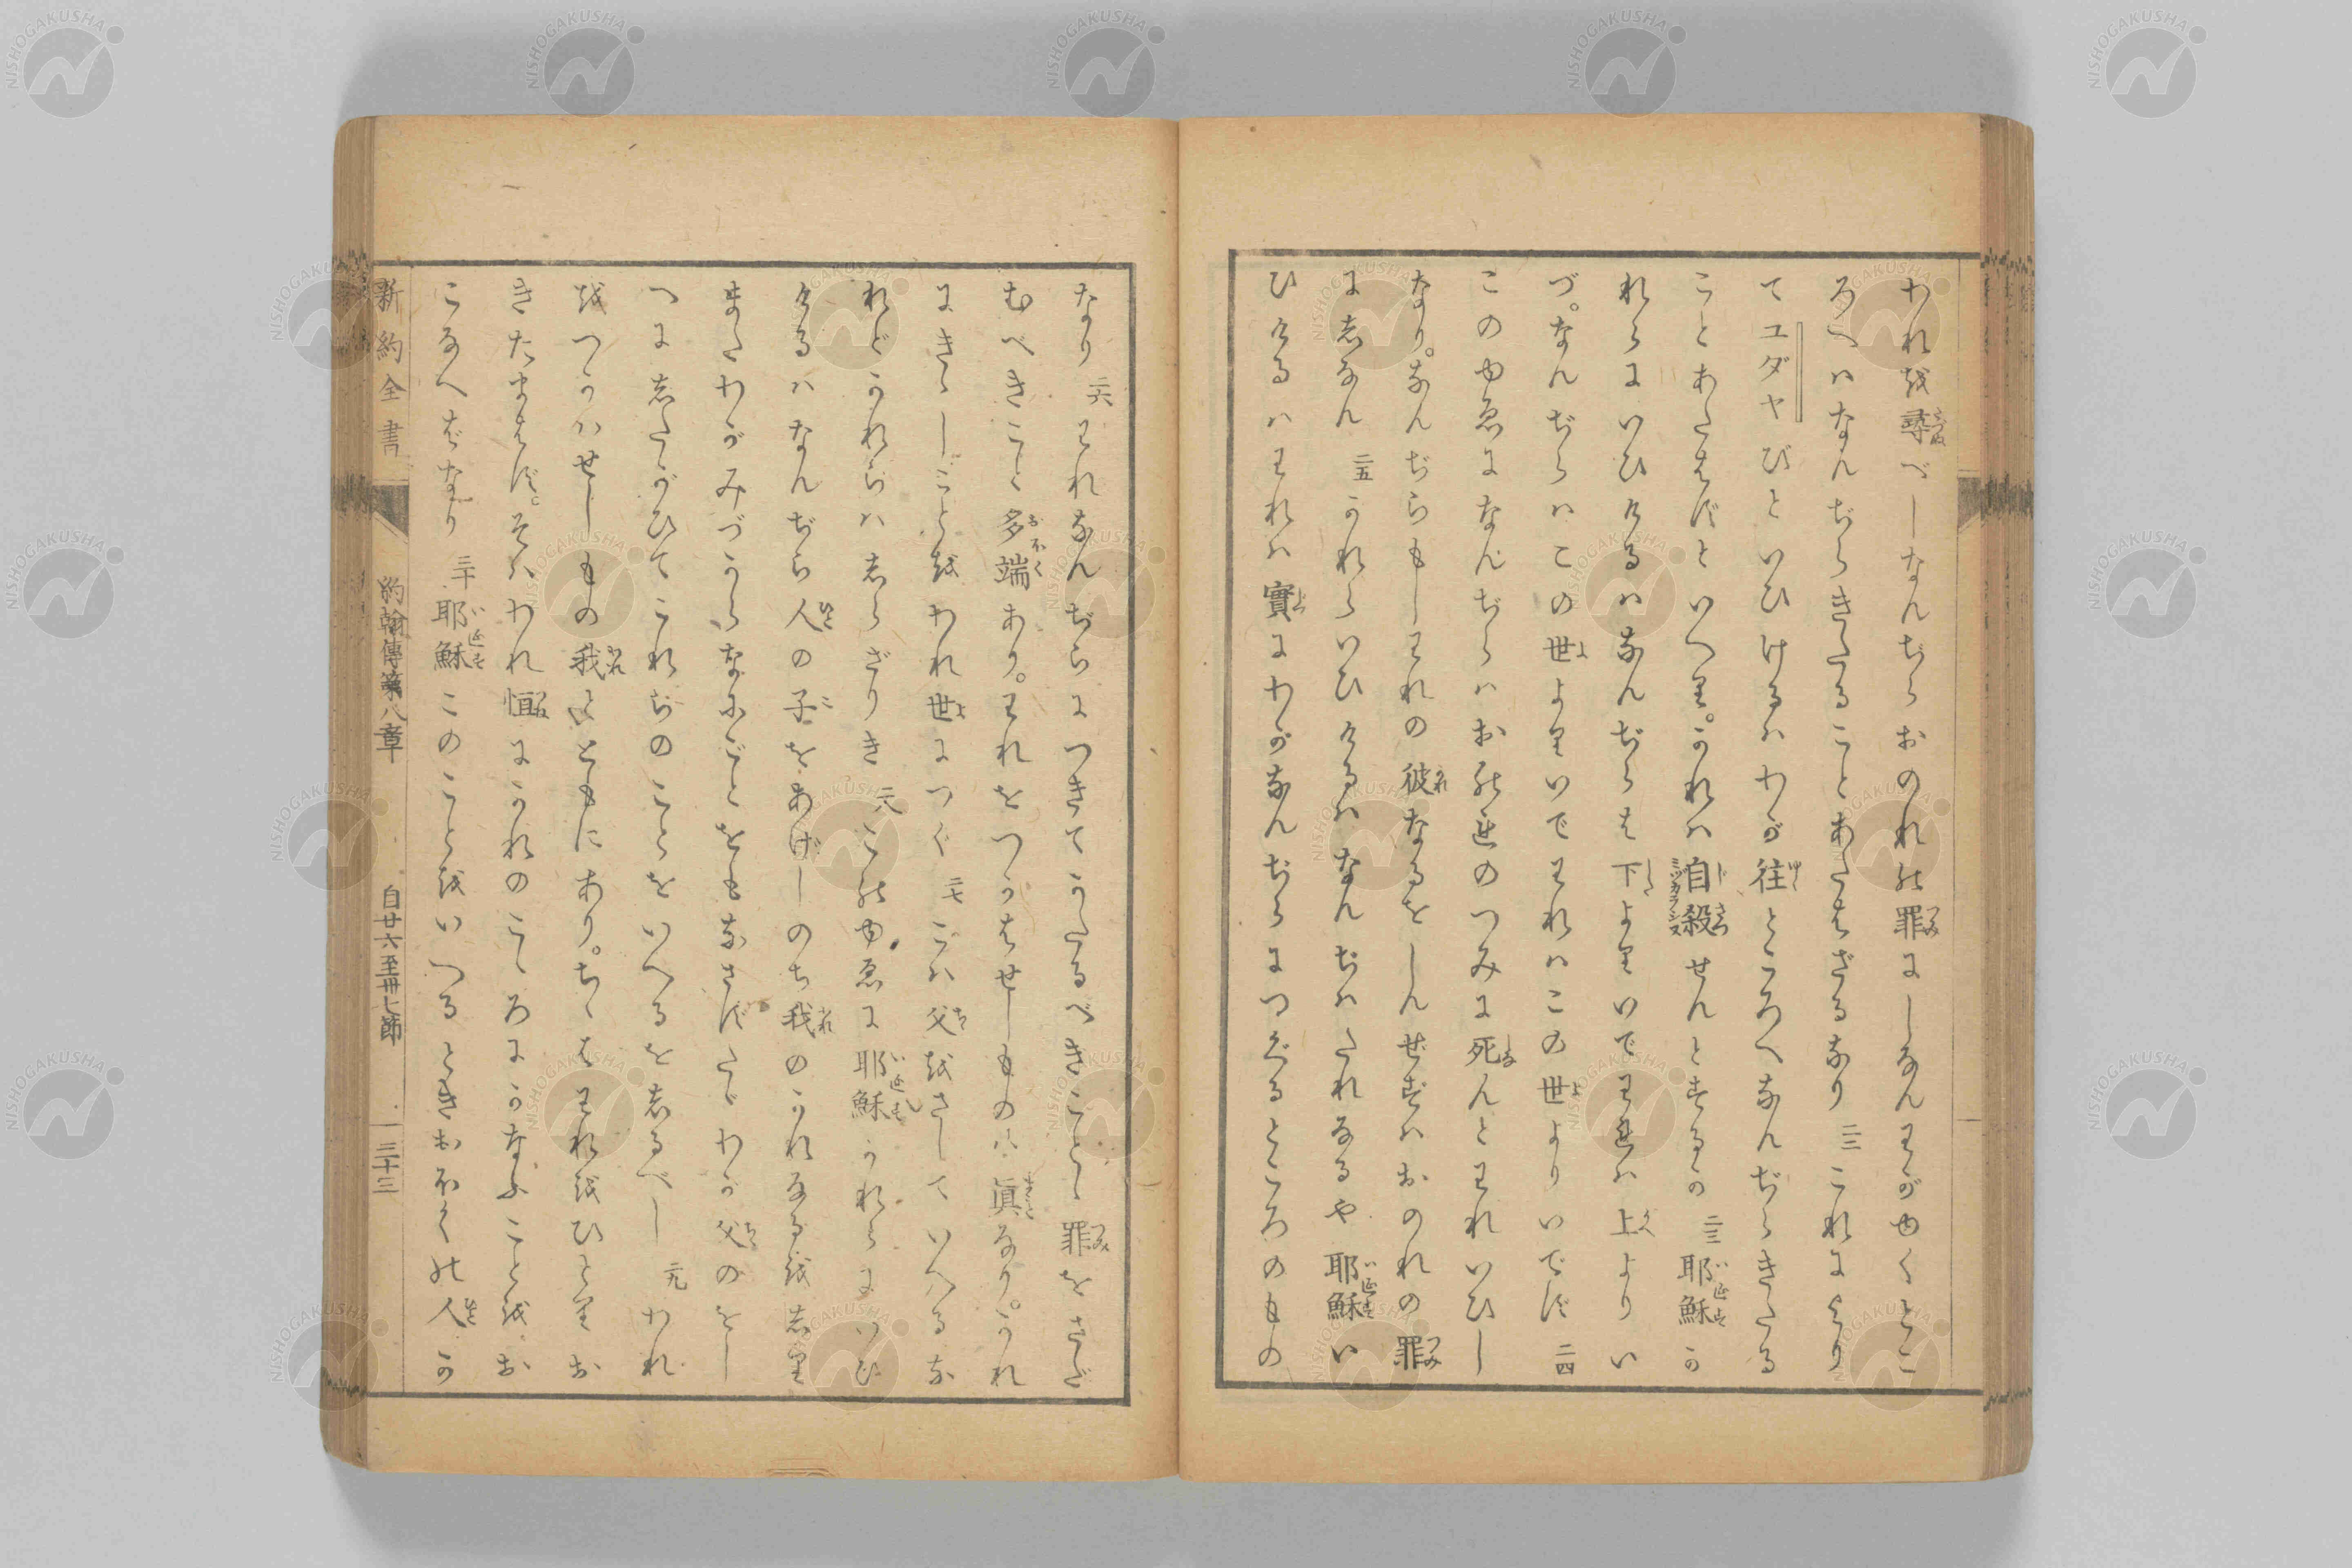 われを尋べしなんぢらおのれの罪にしなんわがゆくとこ
ろへハなんぢらきたることあたはざるなり 二二 これによつ
てユダヤびといひけるハわが往ところへなんぢらきたる
ことあたはずといへり。かれハ自殺せんとするか 二三 耶穌か
れらにいひけるハなんぢらは下よりいでわれハ上よりい
づ。なんぢらハこの世よりいでわれハこの世よりいでず 二四
このゆゑになんぢらハおのれのつみに死んとわれいひし
なり。なんぢらもしわれの彼なるをしんぜずハおのれの罪
にしなん 二五 かれらいひけるハなんぢハたれなるや耶穌い
ひけるハわれハ實にわがなんぢらにつぐるところのもの
なり 二六 われなんぢらにつきてかたるべきことゝ罪をさだ
むべきこと多端あり。われをつかはせしものハ眞なり。われ
にきゝしことをわれ世につぐ 二七 こハ父をさしていへるな
れどかれらハしらざりき 二八 このゆゑに耶穌かれらにいひ
けるハなんぢら人の子をあげしのち我のかれなるをしり
またわがみづからなにごとをもなさずたゞわが父のをし
へにしたがひてこれらのことをいへるをしるべし 二九 われ
をつかハせしもの我とともにあり。ちゝはわれをひとりお
きたまはず。そハわれ恒にかれのこゝろにかなふことをお
こなへばなり 三十 耶穌このことをいへるときおほくの人か
新約全書 約翰傳第八章 自廿六至卅七節 一 三十三